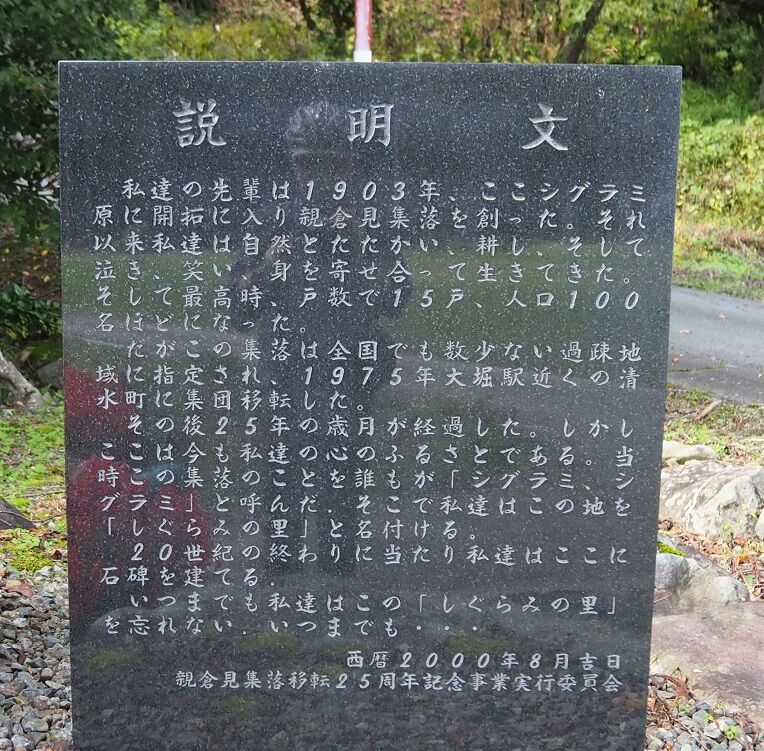 説明文
私達の先輩は1903年、ここシグラミ
原に開拓に入り親倉見集落を創った。それ
以来私達は自然とたたかい、耕し、そして
泣き、笑い、身を寄せ合って生きてきた。
そして最高時、戸数で15戸、人口100
名ほどになった。
だがこの集落は全国でも数少ない過疎地
域に指定され、1975年大堀駅近くの清
水町に集団移転した。
その後25年の歳月が経過した。しかし
ここは今も私達の心のふるさとである。当
時この集落のことを誰もが「シグラミ、シ
グラミ」と呼んだ.そこで私達はこの地を
「しぐらみの里」と名付ける。
20世紀の終わりに当たり私達はここに
石碑を建てる.
いつまでも、私達はこの「しぐらみの里」
を忘れない.いつまでも・・・
西暦2000年8月吉日
親倉見集落移転25周年記念事業実行委員会